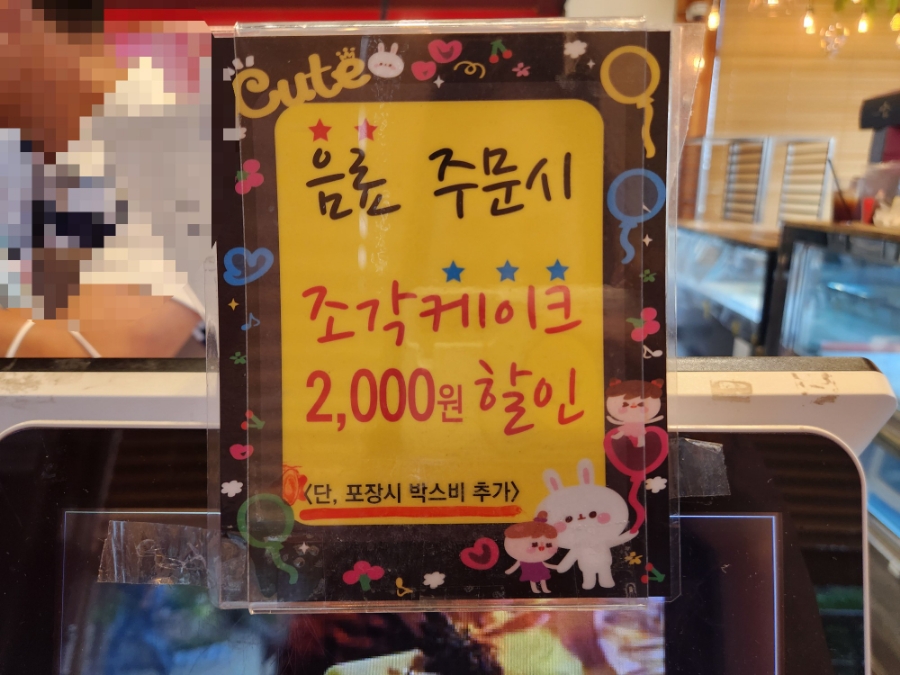 Cute
음료 주문시
조각케이크
2,000원 할인
<단, 포장시 박스비 추가>